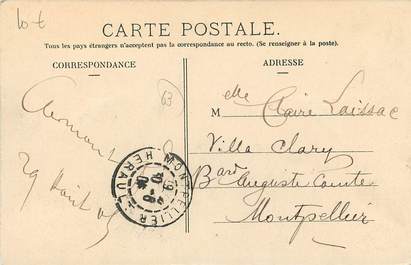 10 €
CARTE POSTALE.
Tous les pays étrangers n'acceptent pas la correspondance au recto. (Se renseigner à la poste).
CORRESPONDANCE
ADRESSE
63
Clermont
29 Août 05
Melle Claire Laissac
Villa Clary
Bard Auguste Comte
Montpellier
MONTPELLIER
HERAULT